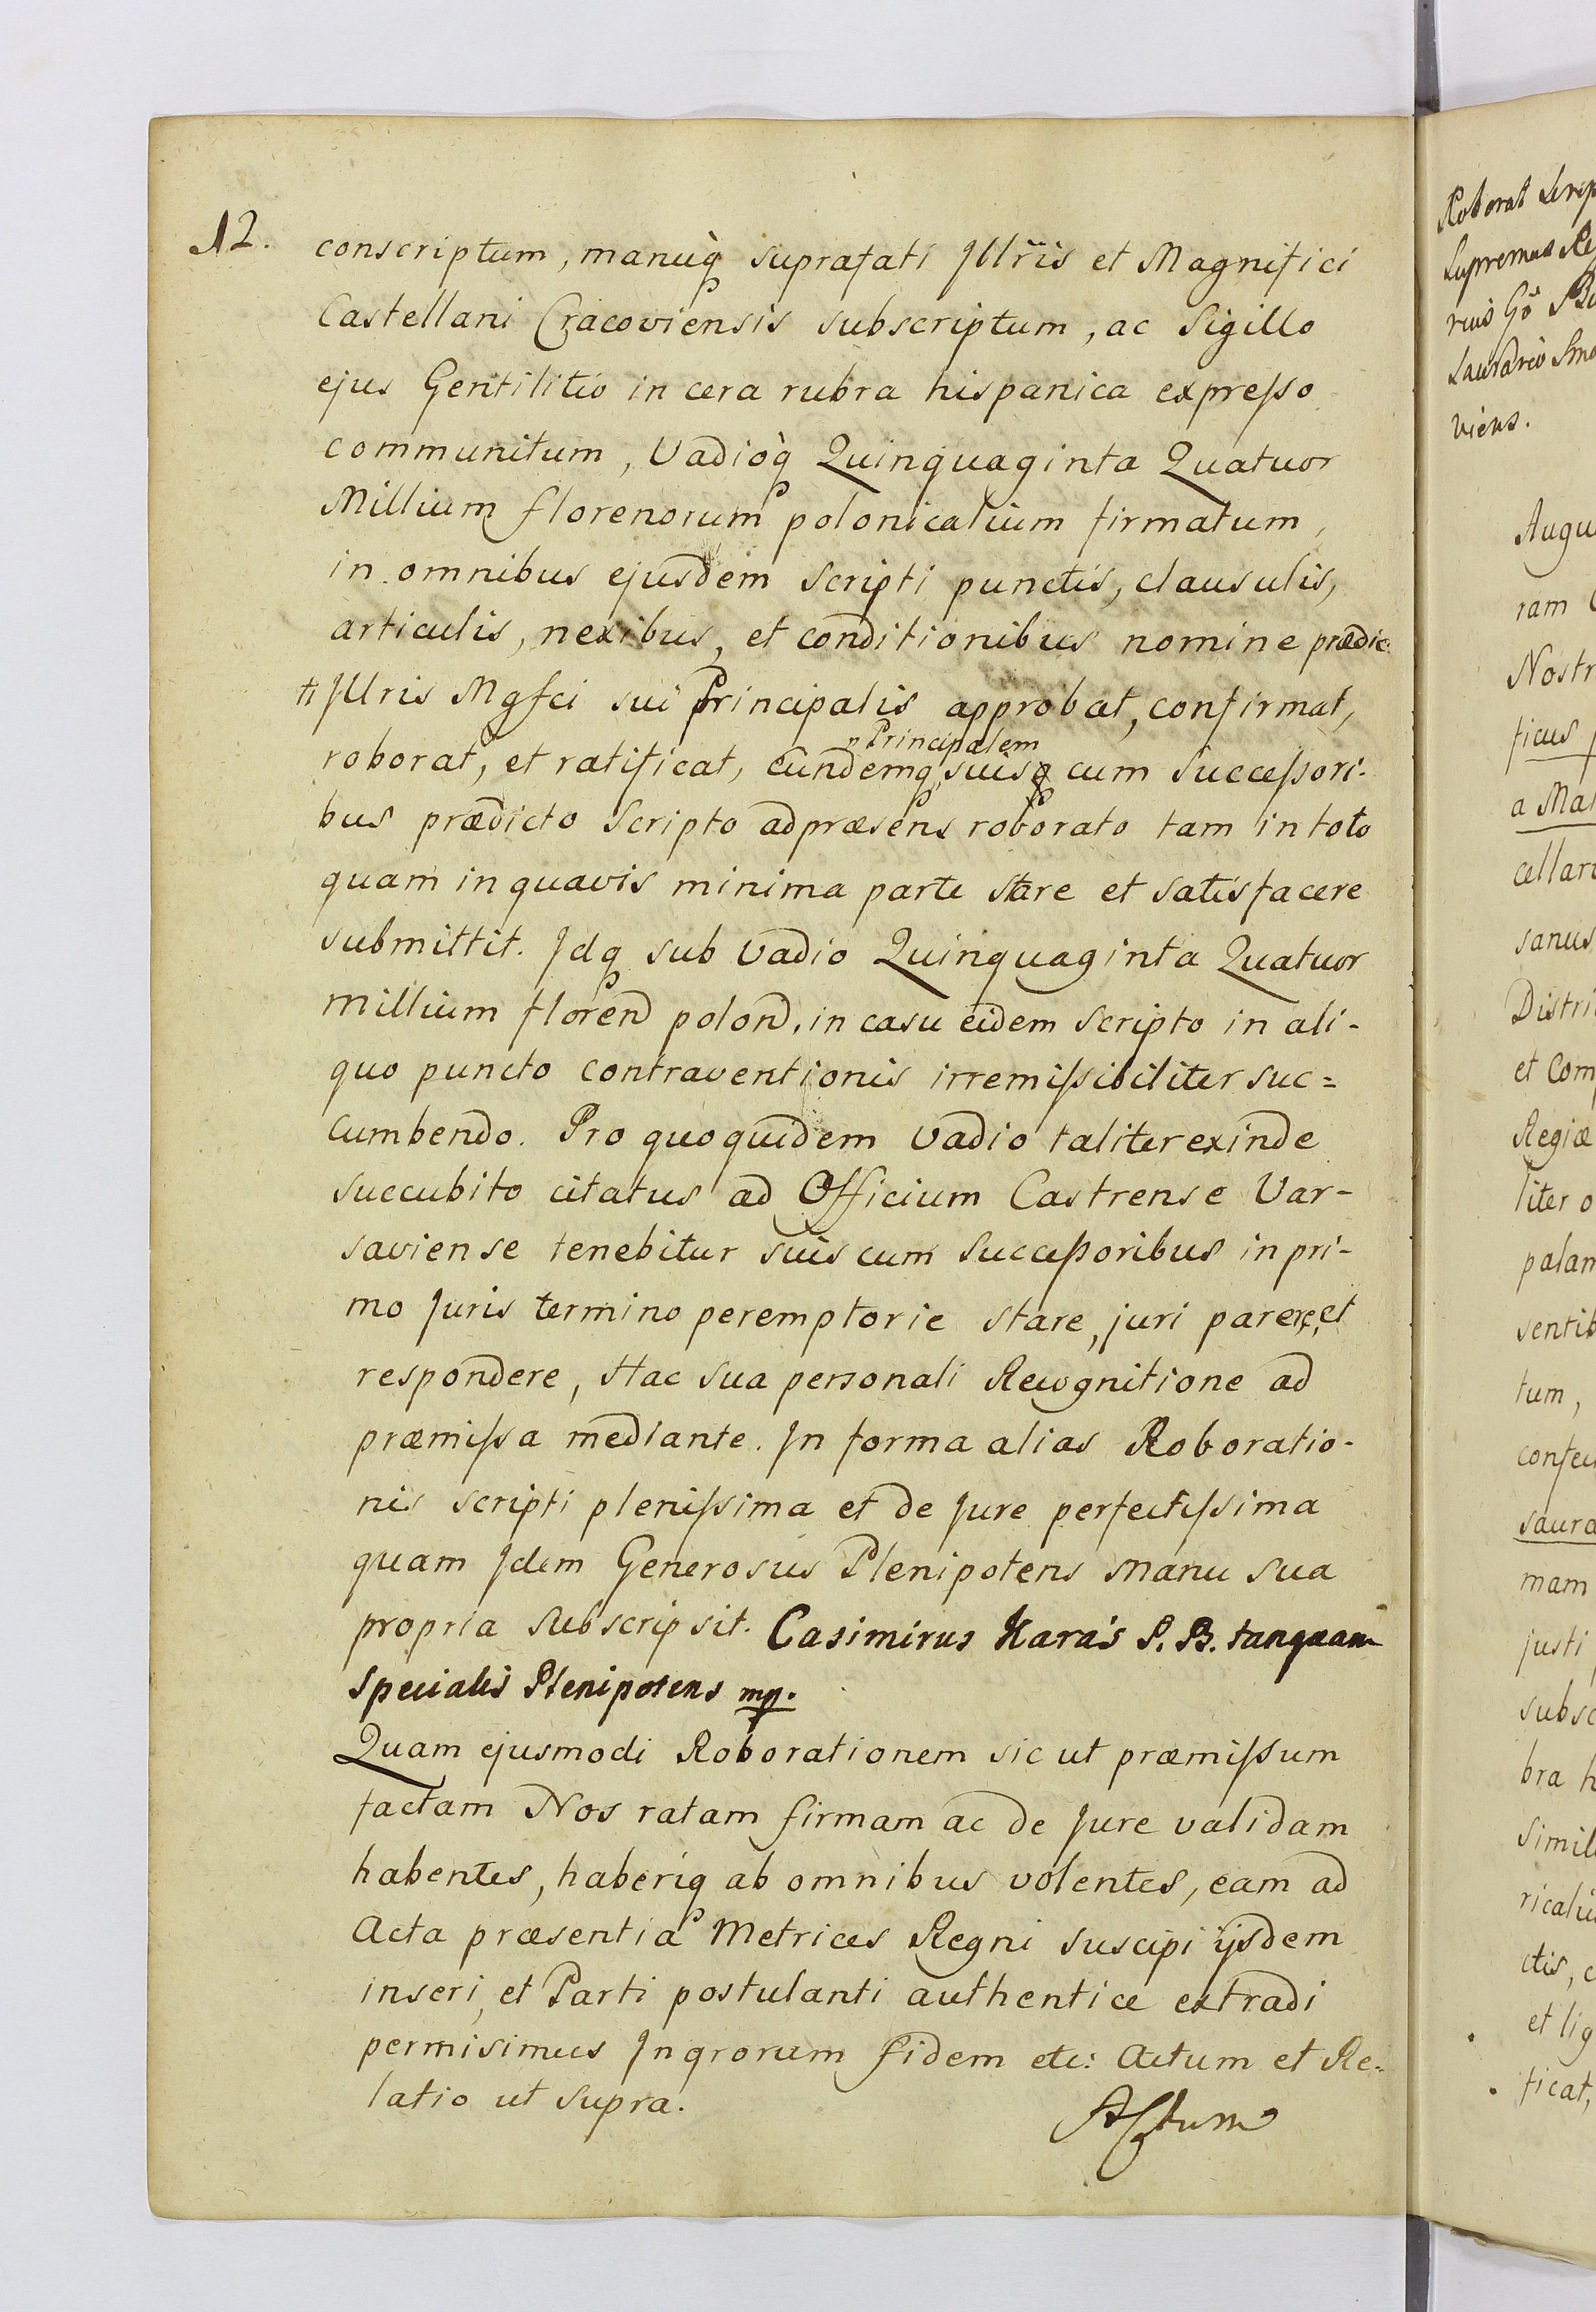 12.
conscriptum, manuq̀ suprafati Jllr̃is et Magnifici
Castellani Cracoviensis subscriptum, ac Sigillo
ejus Gentilitio in cera rubra hispanica expresso
communitum, Vadioq̀ Quinquaginta Quatuor
Millium florenorum polonicalium firmatum,
in omnibus ejusdem scripti punctis, clausulis,
articulis, nexibus, et conditionibus nomine prædic
ti Jllris Mgfci sui Principalis approbat, confirmat,
roborat, et ratificat, eundemq Principalem suisq cum Successori-
bus prædicto Scripto ad præsens roborato tam in toto
quam in quavis minima parte stare et satisfacere
submittit. Jdq sub Vadio Quinquaginta Quatuor
millium floren polon, in casu eidem Scripto in ali-
quo puncto contraventionis irremissibiliter suc=
cumbendo. Pro quo quidem Vadio taliter exinde
succubito citatus ad Officium Castrense Var-
saviense tenebitur suis cum Successoribus in pri-
mo Juris termino peremptorie stare, juri parere, et
respondere, Hac sua personali Recognitione ad
præmissa mediante. Jn forma alias Roboratio-
nis scripti plenissima et de Jure perfectissima
quam Jdem Generosus Plenipotens Manu sua
propria Subscripsit. Casimirus Karaś S. B. tanquam
Specialis Plenipotens mp.
Quam ejusmodi Roborationem sic ut præmissum
factam Nos ratam firmam ac de Jure validam
habentes, haberiq ab omnibus volentes, eam ad
Acta præsentia Metrices Regni suscipi ijsdem
inseri, et Parti postulanti authentice extradi
permisimus Jnqrorum fidem etc: Actum et Re-
latio ut supra.
Actum
Roborat
Supremus Re
viens.
Augu
ram
Nostr
ficus
a Mal
cellari
sanus
Distri
et Com
Regiæ
liter o
palam
sentib
tum,
confec
saura
mam
justi
subsc
bra h
Simili
ricaliu
ctis, c
et lig
ficat,